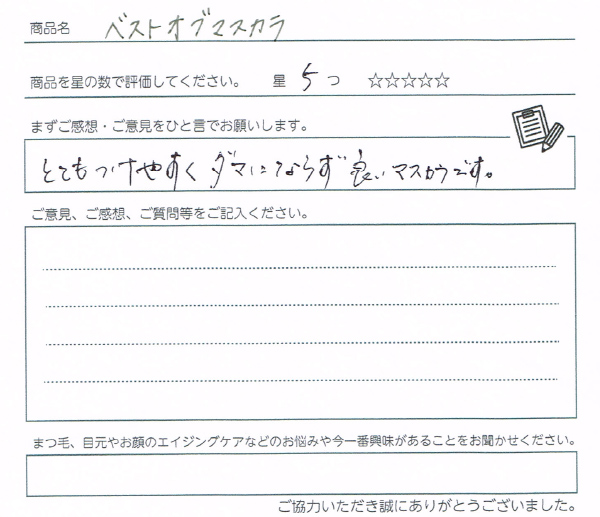 商品名 ベストオブマスカラ
商品を星の数で評価してください。 星 5 つ ☆☆☆☆☆
まずご感想・ご意見をひと言でお願いします。
とてもつけやすくダマにならず良いマスカラです。
ご意見、ご感想、ご質問等をご記入ください。
まつ毛、目元やお顔のエイジングケアなどのお悩みや今一番興味があることをお聞かせください。
ご協力いただき誠にありがとうございました。